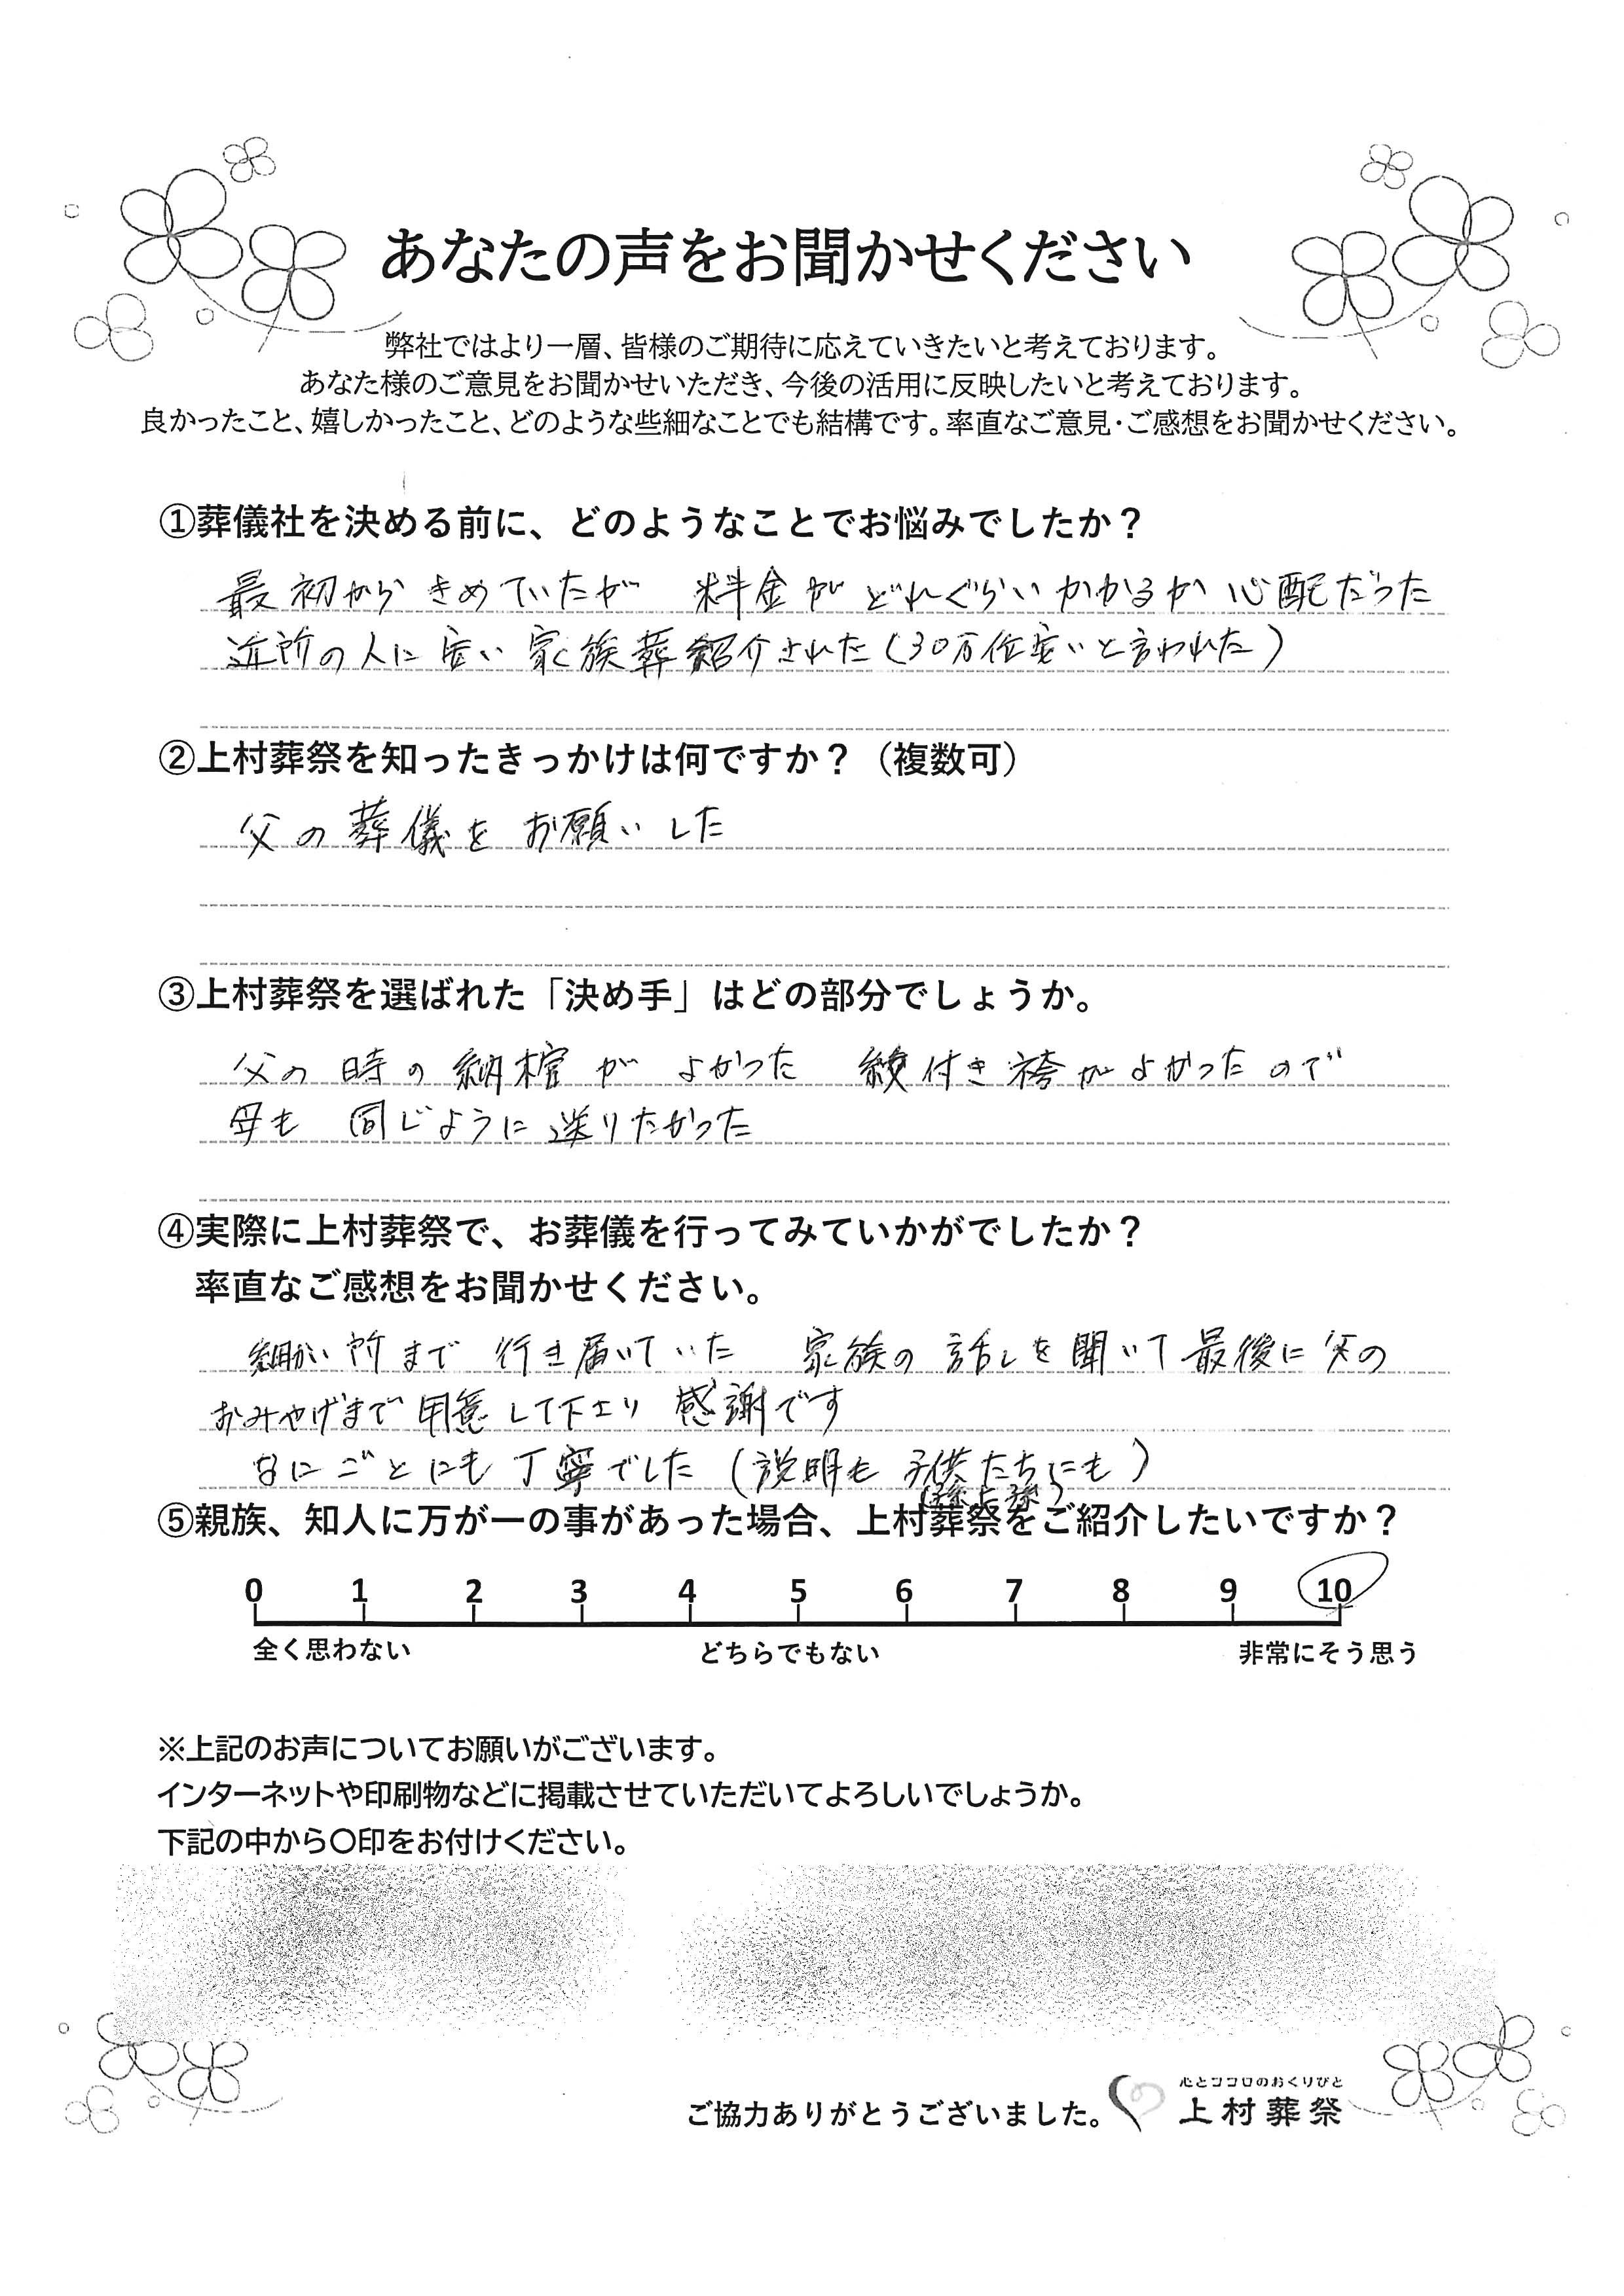 あなたの声をお聞かせください
弊社ではより一層、皆様のご期待に応えていきたいと考えております。
あなた様のご意見をお聞かせいただき、今後の活用に反映したいと考えております。
良かったこと、嬉しかったこと、どのような些細なことでも結構です。率直なご意見・ご感想をお聞かせください。
①葬儀社を決める前に、どのようなことでお悩みでしたか？
最初からきめていたが 料金がどれぐらいかかるか心配だった
近所の人に安い家族葬紹介された（30万位安いと言われた）
②上村葬祭を知ったきっかけは何ですか？（複数可）
父の葬儀をお願いした
③上村葬祭を選ばれた「決め手」はどの部分でしょうか。
父の時の納棺がよかった 紋付き袴がよかったので
母も 同じように送りたかった
④実際に上村葬祭で、お葬儀を行ってみていかがでしたか？
率直なご感想をお聞かせください。
細かい所まで行き届いていた 家族の話しを聞いて最後に父の
おみやげまで用意して下さり 感謝です
なにごとにも丁寧でした（説明も子供たちにも）
⑤親族、知人に万が一の事があった場合、上村葬祭をご紹介したいですか？
0 1 2 3 4 5 6 7 8 9 10
全く思わない どちらでもない 非常にそう思う
※上記のお声についてお願いがございます。
インターネットや印刷物などに掲載させていただいてよろしいでしょうか。
下記の中から〇印をお付けください。
心とココロのおくりびと
ご協力ありがとうございました。 上村葬祭